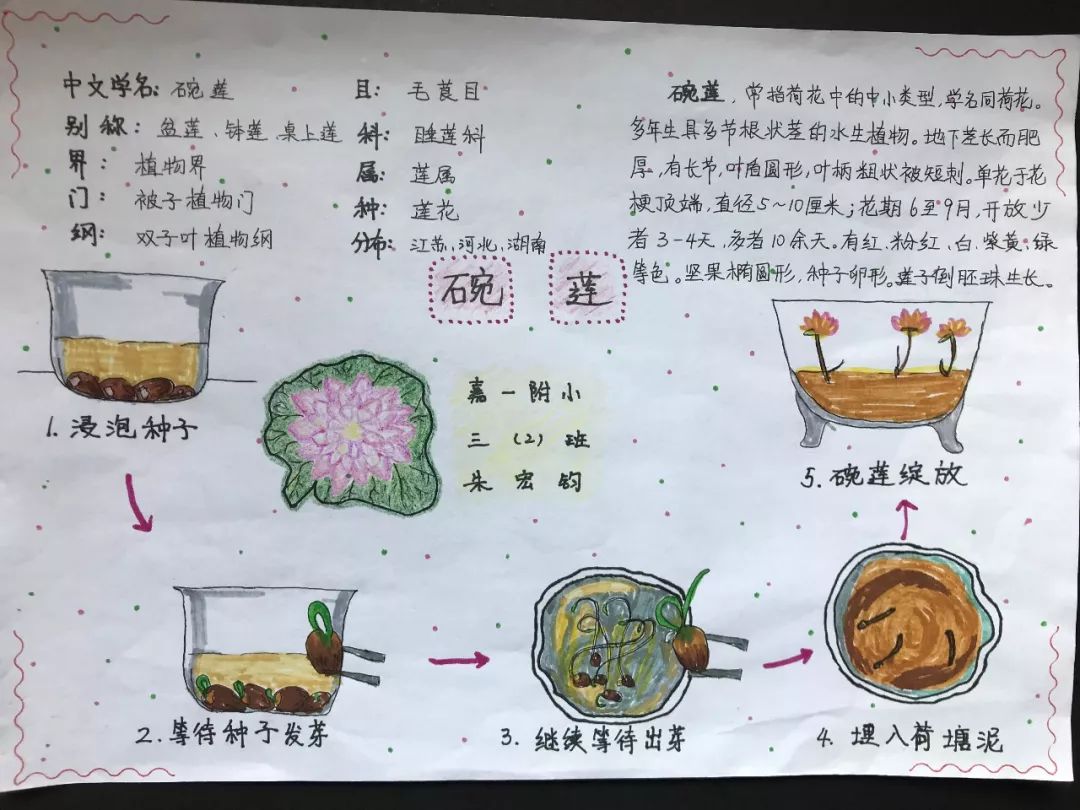 中文学名：碗莲
别称：盆莲、钵莲、桌上莲
界：植物界
门：被子植物门
纲：双子叶植物纲
目：毛茛目
科：睡莲科
属：莲属
种：莲花
分布：江苏、河北、湖南
碗莲，常指荷花中的中小类型，学名同荷花。
多年生具多节根状茎的水生植物。地下茎长而肥
厚，有长节，叶盾圆形，叶柄粗状被短刺。单花于花
梗顶端，直径5~10厘米；花期6至9月，开放少
者3-4天，多者10余天。有红、粉红、白、紫黄、绿
等色。坚果椭圆形，种子卵形。莲子倒胚珠生长。
碗莲
嘉一附小
三（2）班
朱宏钧
1.浸泡种子
2.等待种子发芽
3.继续等待出芽
4.埋入荷塘泥
5.碗莲绽放